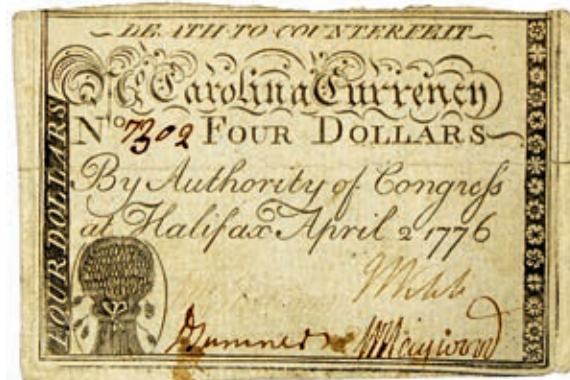 DEATH TO COUNTERFEIT
N Carolina Currency
No 7302 FOUR DOLLARS
By Authority of Congress
at Halifax April 2 1776
FOUR DOLLARS
J Webb
J Sumner W Haywood